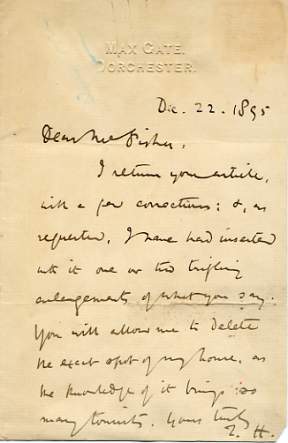 MAX GATE,
DORCHESTER.
Dec. 22. 1895
Dear Mr Fisher,
I return your article,
with a few corrections: &, as
requested, I have had inserted
into it one or two trifling
enlargements of what you say.
You will allow me to delete
the exact spot of my house, as
the knowledge of it brings so
many tourists. Yours truly
T. H.